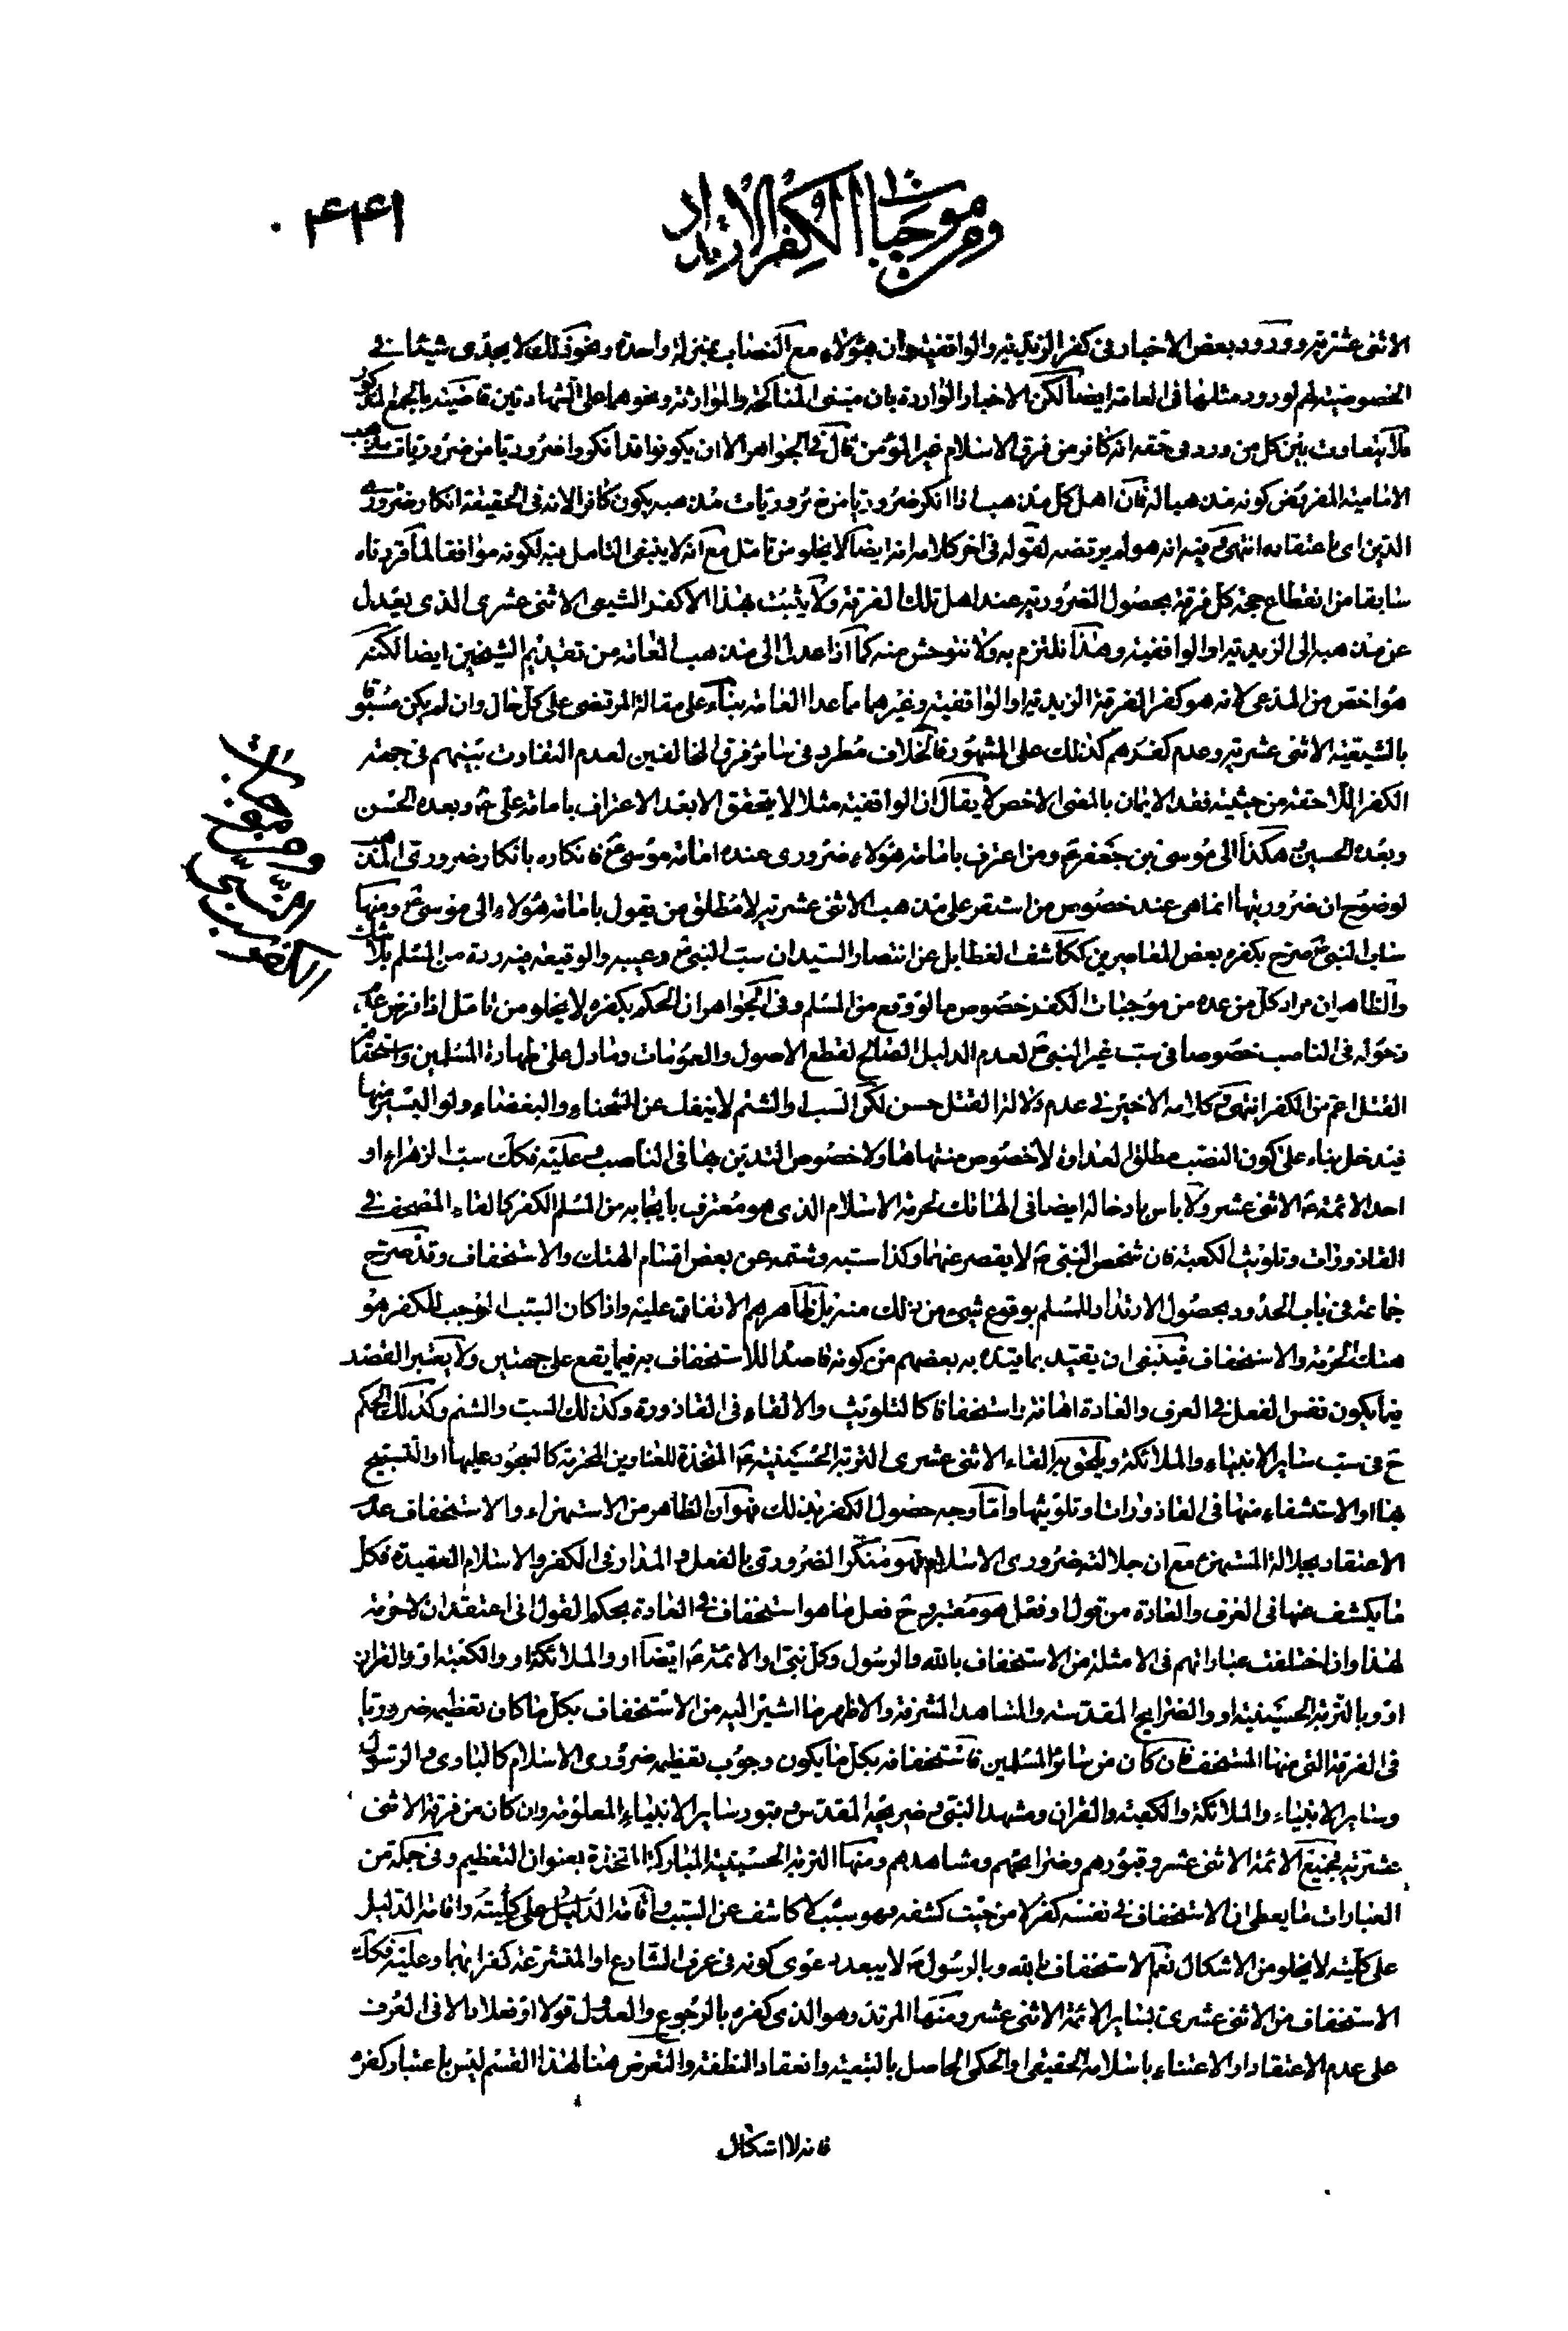 ومن موجبات الكفر الارتداد
۴۴۱
الاثنى عشرية وورود بعض الاخبار فى كفر الزيدية والواقفية وان هؤلاء مع النصاب بمنزلة واحدة ونحو ذلك لا يجدى شيئا فى
الخصوصية لهم لورود مثلها فى العامة ايضا لكن الاخبار الواردة بان مبنى المناكحة والموارثة ونحوهما على الشهادتين قاضية بالجمع المذكور
فلا يتفاوت بين كل من ورد فى حقه انه كافر من فرق الاسلام غير المؤمن قال فى الجواهر الا ان يكونوا قد انكروا ضروريا من ضروريات مذهب
الامامية المفروض كونه مذهبا له فان اهل كل مذهب اذا انكر ضروريا من ضروريات مذهبه يكون كافرا لانه فى الحقيقة انكار ضرورى
الدين اى باعتقاده انتهى وفيه انه هو لم يرتضه لقوله فى اخر كلامه انه ايضا لا يخلو من تامل مع انه لا ينبغى التامل فيه لكونه موافقا لما قررناه
سابقا من انقطاع حجة كل فرقة بحصول الضرورية عند اهل تلك الفرقة ولا يثبت بهذا الا كفر الشيعى الاثنى عشرى الذى يعدل
عن مذهبه الى الزيدية او الواقفية وهذا نلتزم به ولا نتوحش منه كما اذا عدل الى مذهب العامة من تقديم الشيخين ايضا لكنه
هو اخص من المدعى لانه هو كفر الفرقة الزيدية او الواقفية وغيرهما مما عدا العامة بناء على مقالة المرتضى على كل حال وان لم يكن مسبوقا
بالشيعية الاثنى عشرية وعدم كفرهم كذلك على المشهور فالخلاف مطرد فى سائر فرق المخالفين لعدم التفاوت بينهم فى جهة
الكفر اللاحقة من حيثية فقد الايمان بالمعنى الاخص لا يقال ان الواقفية مثلا لا يتحقق الا بعد الاعتراف بامامة على ع وبعده الحسن
وبعده الحسين ع هكذا الى موسى بن جعفر ع ومن اعترف بامامة هؤلاء ضرورى عنده امامة موسى ع فانكاره بانكار ضرورى المذهب
لوضوح ان ضروريتها انما هى عند خصوص من استقر على مذهب الاثنى عشرية لا مطلق من يقول بامامة هؤلاء الى موسى ع ومنها
ساب النبى ص صرح بكفره بعض المعاصرين ككاشف الغطا بل عن انتصار السيد ان سب النبى ص وعيبه والوقيعة فيه ردة من المسلم بلا شك
والظاهر ان مراد كل من عده من موجبات الكفر خصوص ما لو وقع من المسلم وفى الجواهر ان الحكم بكفره لا يخلو من تامل اذا فرض عدم
دخوله فى الناصب خصوصا فى سب غير النبى ص لعدم الدليل الصالح لقطع الاصول والعمومات وما دل على طهارة المسلمين واستحقاق
القتل اعم من الكفر انتهى وكلامه الاخير فى عدم دلالة القتل حسن لكن السب والشتم لا ينفك عن الشحناء والبغضاء ولو اليسير منها
فيدخل بناء على كون النصب مطلق العداوة لا خصوص منتهاها ولا خصوص التدين بها فى الناصب وعليه فكك سب الزهراء او
احد الائمة ع الاثنى عشر ولا باس بادخاله ايضا فى الهاتك لحرمة الاسلام الذى هو معترف بايجابه من المسلم الكفر كالقاء المصحف فى
القاذورات وتلويث الكعبة فان شخص النبى ص لا يقصر عنهما وكذا سبه وشتمه عن بعض اقسام الهتك والاستخفاف وقد صرح
جماعة فى باب الحدود بحصول الارتداد للمسلم بوقوع شىء من ذلك منه بل ظاهرهم الاتفاق عليه واذا كان السبب الموجب للكفر هو
هتك الحرمة والاستخفاف فينبغى ان يقيد بما قيده به بعضهم من كونه قاصدا للاستخفاف به فيما يقع على جهتين ولا يعتبر القصد
فيما يكون نفس الفعل فى العرف والعادة اهانة واستخفافا كالتلويث والالقاء فى القاذورة وكذلك السب والشتم وكذلك الحكم
ح فى سب سائر الانبياء والملائكة ويلحق به القاء الاثنى عشرى التربة الحسينية ع المتخذة للعناوين المحترمة كالسجود عليها او التسبيح
بها او الاستشفاء منها فى القاذورات وتلويثها واما وجه حصول الكفر بذلك فهو ان الظاهر من الاستهزاء والاستخفاف عدم
الاعتقاد بجلالة المستهزء مع ان جلالته ضرورى الاسلام فهو منكر الضرورى بالفعل والمدار فى الكفر والاسلام العقيدة فكل
ما يكشف عنها فى العرف والعادة من قول او فعل هو معتبر وح فعل ما هو استخفاف فى العادة بحكم القول انى اعتقد ان لا حرمة
لهذا وان اختلفت عباراتهم فى الامثلة من الاستخفاف بالله والرسول وكل نبى او الائمة ع ايضا او والملائكة او والكعبة او وبالقران
او وبالتربة الحسينية او والضرايح المقدسة والمشاهد المشرفة والاظهر ما اشير اليه من الاستخفاف بكل ما كان تعظيمه ضروريا
فى الفرقة التى منها المستخف فان كان من سائر المسلمين فاستخفافه بكل ما يكون وجوب تعظيمه ضرورى الاسلام كالبارى والرسول
وساير الانبياء والملائكة والكعبة والقران ومشهد النبى وضريحه المقدس وقبور ساير الانبياء المعلومة وان كان من فرقة الاثنى
عشرية بجميع الائمة الاثنى عشر وقبورهم وضرايحهم ومشاهدهم ومنها التربة الحسينية المباركة المتخذة بعنوان التعظيم وفى جملة من
العبارات ما يعطى ان الاستخفاف فى نفسه كفر لا من حيث كشفه فهو سبب لا كاشف عن السبب واقامة الدليل على كليته واقامة الدليل
على كليته لا يخلو من الاشكال نعم الاستخفاف بالله وبالرسول ص لا يبعد دعوى كونه فى عرف الشارع او المتشرعة كفرا بهما وعليه فكك
الاستخفاف من الاثنى عشرى بساير الائمة الاثنى عشر ومنها المرتد وهو الذى كفره بالرجوع والعدول قولا او فعلا دالا فى العرف
على عدم الاعتقاد او الاعتناء باسلامه الحقيقى او الحكمى الحاصل بالتبعية وانعقاد النطفة والتعرض هنا لهذا القسم ليس باعتبار كفره
فانه لا اشكال